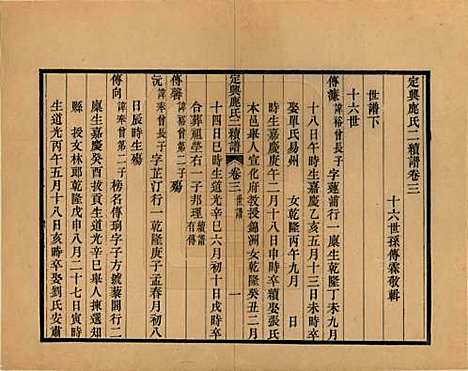 定興鹿氏二續譜卷三
十六世孫傳霖敬輯
世譜下
十六世
傳謙諱裕曾長子字蓮浦行一廩生乾隆丁未九月
十八日午時生嘉慶乙亥五月十三日未時卒
娶單氏易州 女乾隆丙午九月 日
時生嘉慶庚午二月十八日申時卒續娶張氏
本邑舉人宣化府教授錦洲女乾隆癸丑二月
定興鹿氏二續譜 卷三 世譜 一
十四日巳時生道光辛巳六月初十日戌時卒
合葬祖塋右一子邦理續譜有傳
傳馨諱裕曾第二子殤
沅諱奉曾長子字芷汀行一乾隆庚子孟春月初八
日辰時生殤
傳向諱奉曾第二子榜名傳珦字子方號藜閣行二
廩生嘉慶癸酉拔貢道光辛巳舉人揀選知
縣授文林郎乾隆戊申八月二十七日寅時
生道光丙午五月十八日亥時卒娶劉氏安肅